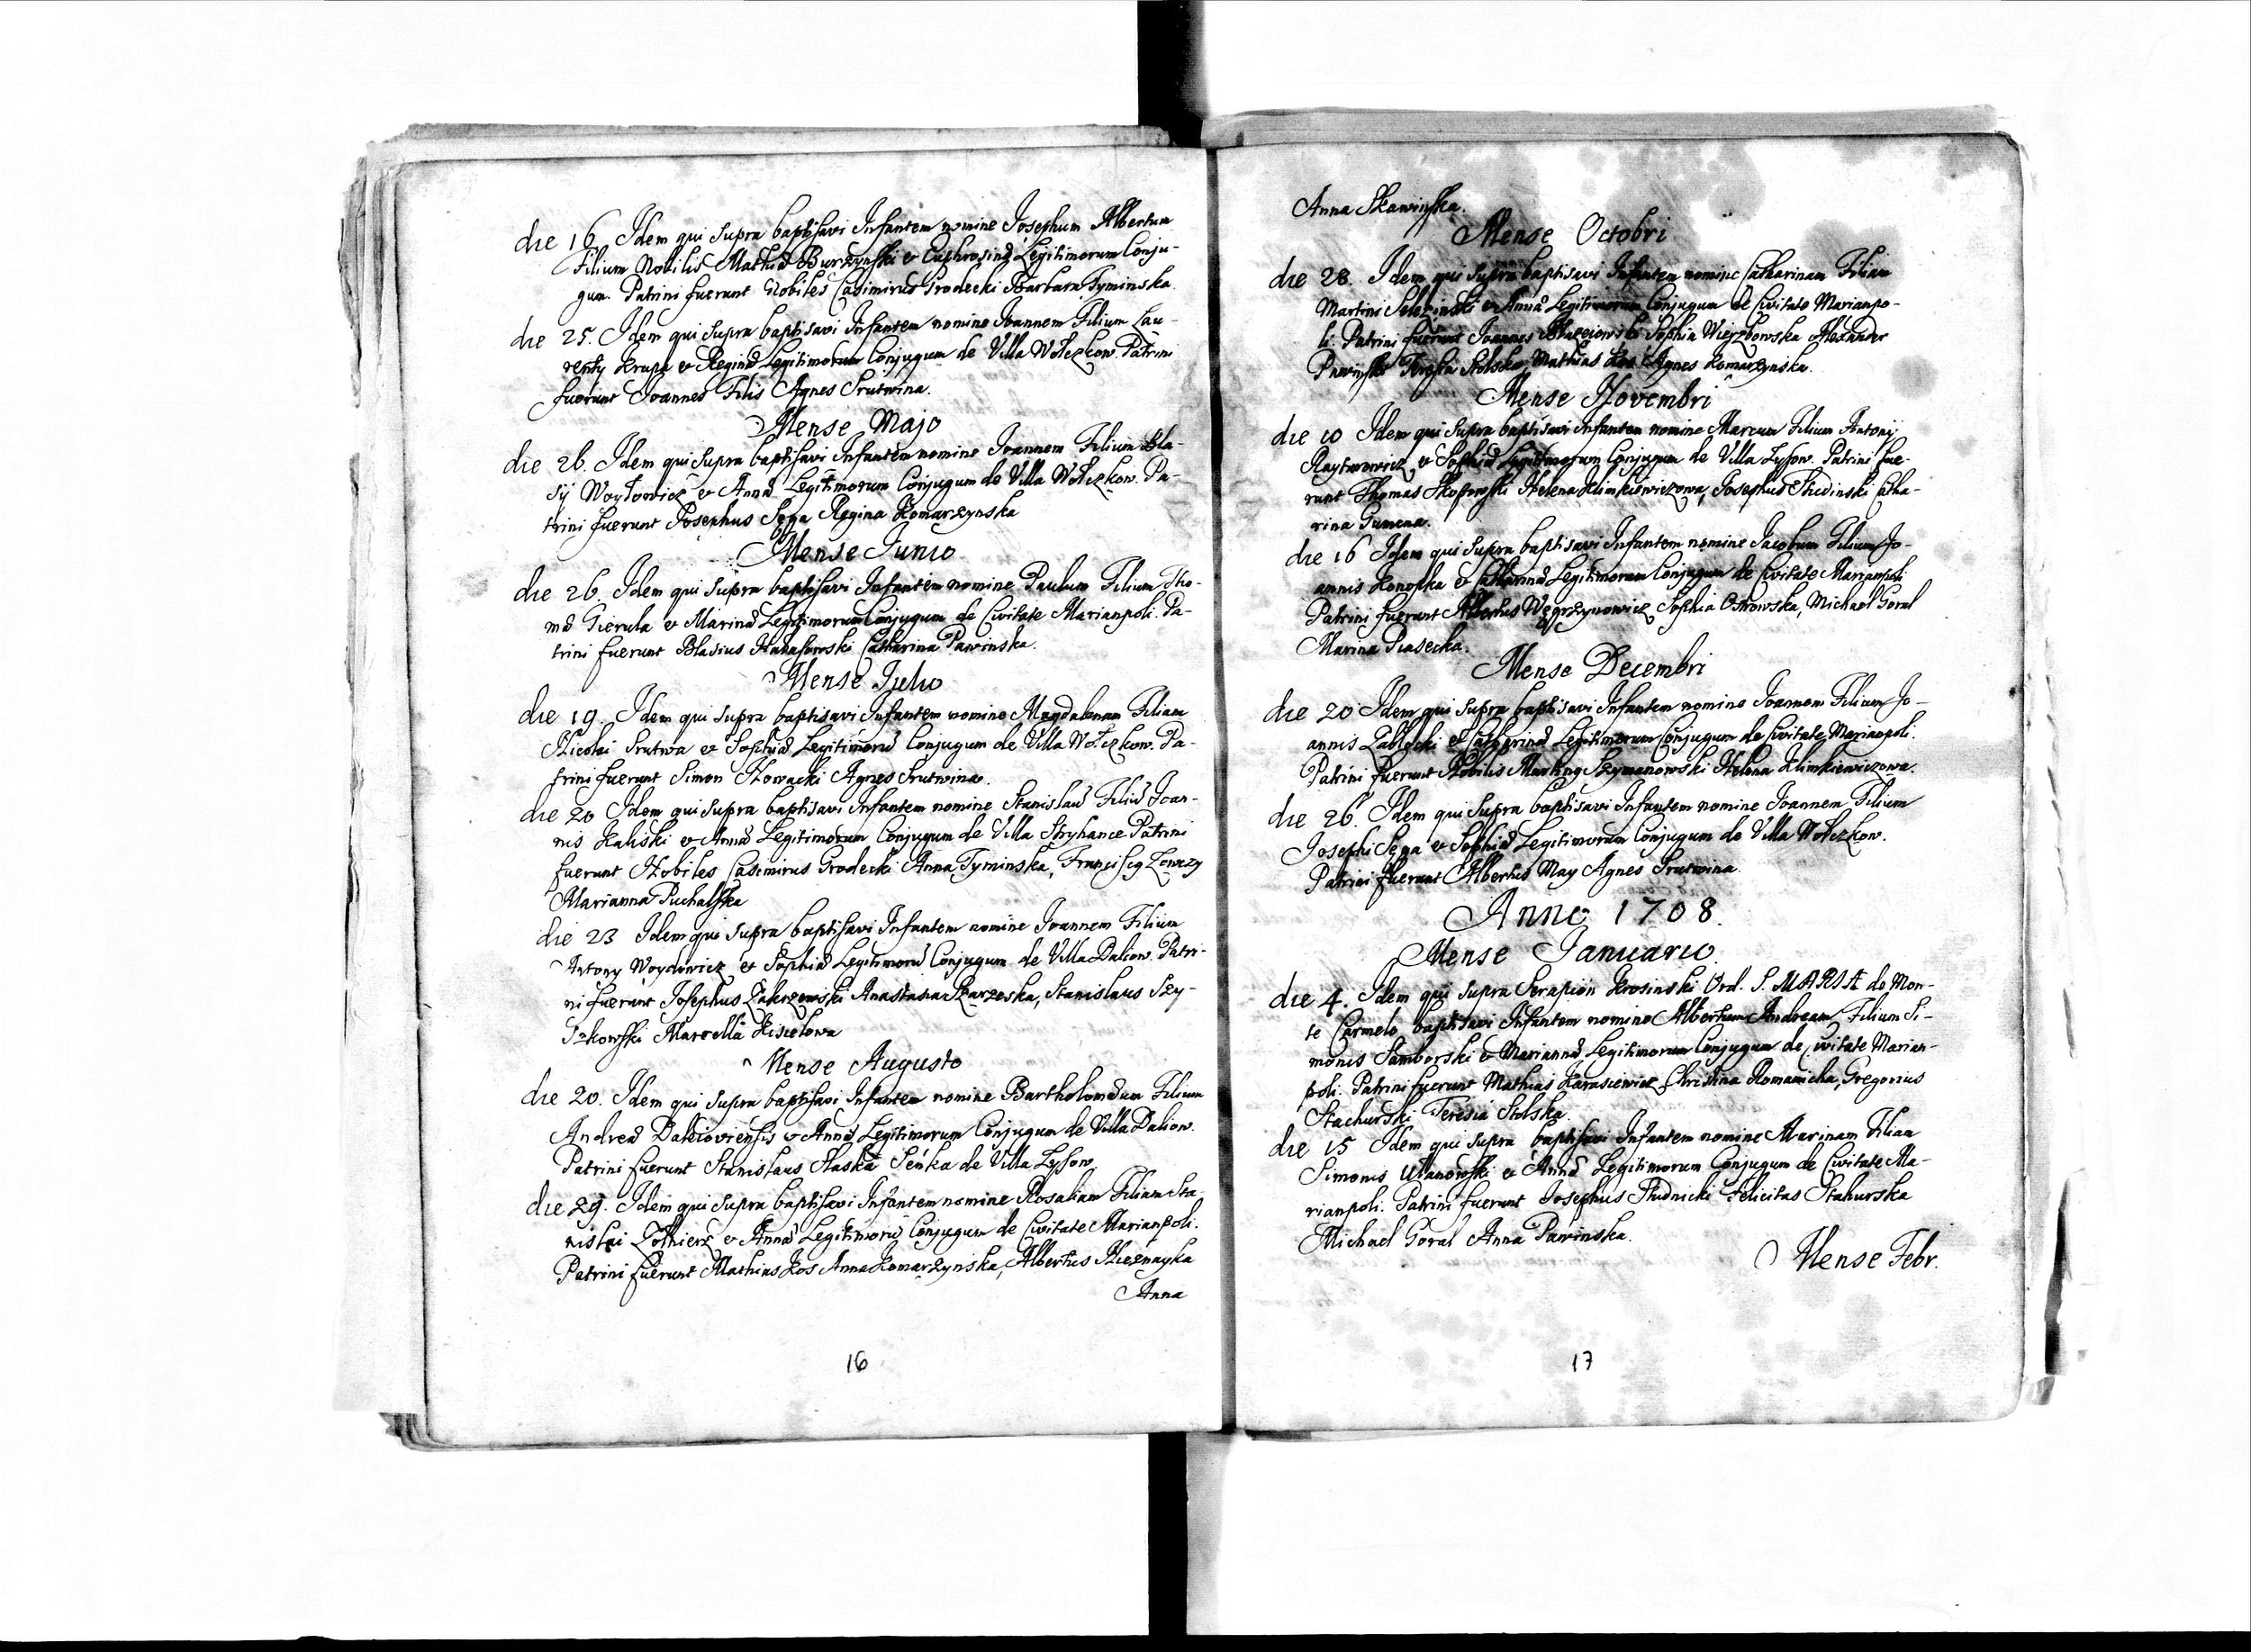 die 16 Idem qui supra baptisavi Infantem nomine Josephum Albertum
Filium Nobilis Mathiæ Burzynski & Euphrosinæ Legitimorum Conju-
gum. Patrini fuerunt Nobiles Casimirus Grodecki Barbara Tyminska.
die 25. Idem qui supra baptisavi Infantem nomine Joannem Filium Lau-
renty Krupa & Reginæ Legitimorum Conjugum de Villa Wołczkow. Patrini
fuerunt Joannes Filis Agnes Srutwina.
Mense Majo
die 26. Idem qui supra baptisavi Infantem nomine Joannem Filium Bla-
sÿ Woytowicz & Annæ Legitimorum Conjugum de Villa Wołczkow. Pa-
trini fuerunt Josephus Sega Regina Komarzynska
Mense Junio
die 26. Idem qui supra baptisavi Infantem nomine Paulum Filium Tho-
mæ Gierula & Marinæ Legitimorum Conjugum de Civitate Marianpoli. Pa-
trini fuerunt Blasius Catharina Pawinska.
Mense Julio
die 19. Idem qui supra baptisavi Infantem nomine Magdalenam Filiam
Nicolai Srutwa & Sophiæ Legitimorū Conjugum de Villa Wołczkow. Pa-
trini fuerunt Simon Nowacki Agnes Srutwina.
die 20 Idem qui supra baptisavi Infantem nomine Stanislaū Filiū Joan-
nis Kaliski & Annæ Legitimorum Conjugum de Villa Stryhance Patrini
fuerunt Nobiles Casimirus Grodecki Anna Tyminska,
Marianna Puchalska
die 23 Idem qui supra baptisavi Infantem nomine Joannem Filium
Antony Woydowicz & Sophiæ Legitimorū Conjugum de Villa Delion. Patri-
ni fuerunt Josephus Zakrzewski Anastasia Skarzeska, Stanislaus Szy-
szkowski Marcella Kisielowa
Mense Augusto
die 20. Idem qui supra baptisavi Infantem nomine Bartholomæum Filium
Andreæ Daleioviensis & Annæ Legitimorum Conjugum de Villa Delion.
Patrini fuerunt Stanislaus Slaska Senka de Villa Lysow
die 29. Idem qui supra baptisavi Infantem nomine Rosaliam Filiam Sta-
nislai Zołnierz & Annæ Legitimorū Conjugum de Civitate Marianpoli.
Patrini fuerunt Mathias Kos Anna Komarzynska, Albertus
Anna
16
Anna Skawinska.
Mense Octobri
die 28. Idem qui supra baptisavi Infantem nomine Catharinam Filiam
Martini & Annæ Legitimorum Conjugum de Civitate Marianpo-
li. Patrini fuerunt Joannes Błazeiowski Sophia Wierzbowska Alexander
Pawinski Teresia Stolska, Mathias Kos Agnes Komarzynska.
Mense Novembri
die 10 Idem qui supra baptisavi Infantem nomine Marcum Filium Antonij
Raytarowicz & Sophiæ Legitimorum Conjugum de Villa Lysow. Patrini fue-
runt Thomas Helena Klimkiewiczowa, Josephus Studinski Catha-
rina Gumena.
die 16 Idem qui supra baptisavi Infantem nomine Jacobum Filium Jo-
annis Konopka & Catharinæ Legitimorum Conjugum de Civitate Marianpoli
Patrini fuerunt Albertus Węgrzynowicz Sophia Ostrowska, Michael Goral
Marina Piasecka.
Mense Decembri
die 20 Idem qui supra baptisavi Infantem nomine Joannem Filium Jo-
annis Zabłocki & Catharinæ Legitimorum Conjugum de Civitate Marianpoli.
Patrini fuerunt Nobilis Martinus Szymanowski Helena Klimkiewiczowa.
die 26. Idem qui supra baptisavi Infantem nomine Joannem Filium
Josephi Sega & Sophiæ Legitimorum Conjugum de Villa Wołczkow.
Patrini fuerunt Albertus May Agnes Srutwina
Anno 1708.
Mense Januario.
die 4. Idem qui supra Serapion Krosinski Ord. S. MARIÆ de Mon-
te Carmelo baptisavi Infantem nomine Albertum Andream Filium Si-
monis Samborski & Mariannæ Legitimorum Conjugum de Civitate Marian-
poli. Patrini fuerunt Mathias Karasiewicz Christina Romanicha, Gregorius
Stachurski Teresia Stolska
die 15 Idem qui supra baptisavi Infantem nomine Marinam Filiam
Simonis Ulanowski & Annæ Legitimorum Conjugum de Civitate Ma-
rianpoli. Patrini fuerunt Josephus Studnicki Felicitas Stahurska
Michael Goral Anna Pawinska.
Mense Febr.
17